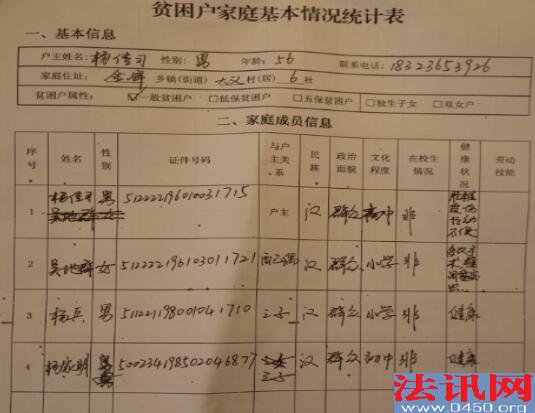 贫困户家庭基本情况统计表
一、基本信息
户主姓名: 杨佳可 性别: 男 年龄: 56 联系电话: 18323653926
家庭住址: 金峰 乡镇(街道) 大义 村(居) 6 社
贫困户属性: ☑一般贫困户 □低保贫困户 □五保贫困户 □独生子女 □双女户
二、家庭成员信息
序号 姓名 性别 证件号码 与户主关系 民族 政治面貌 文化程度 在校生情况 健康状况 劳动技能
1 杨佳可 男 512222196010031715 户主 汉 群众 高中 非
2 吴地群 女 512222196103011721 配偶 汉 群众 小学 非
3 杨兵 男 511221198001041710 三子 汉 群众 小学 非 健康
4 杨家明 男 500234198502046877 三子 汉 群众 初中 非 健康
法讯网
www.0450.org